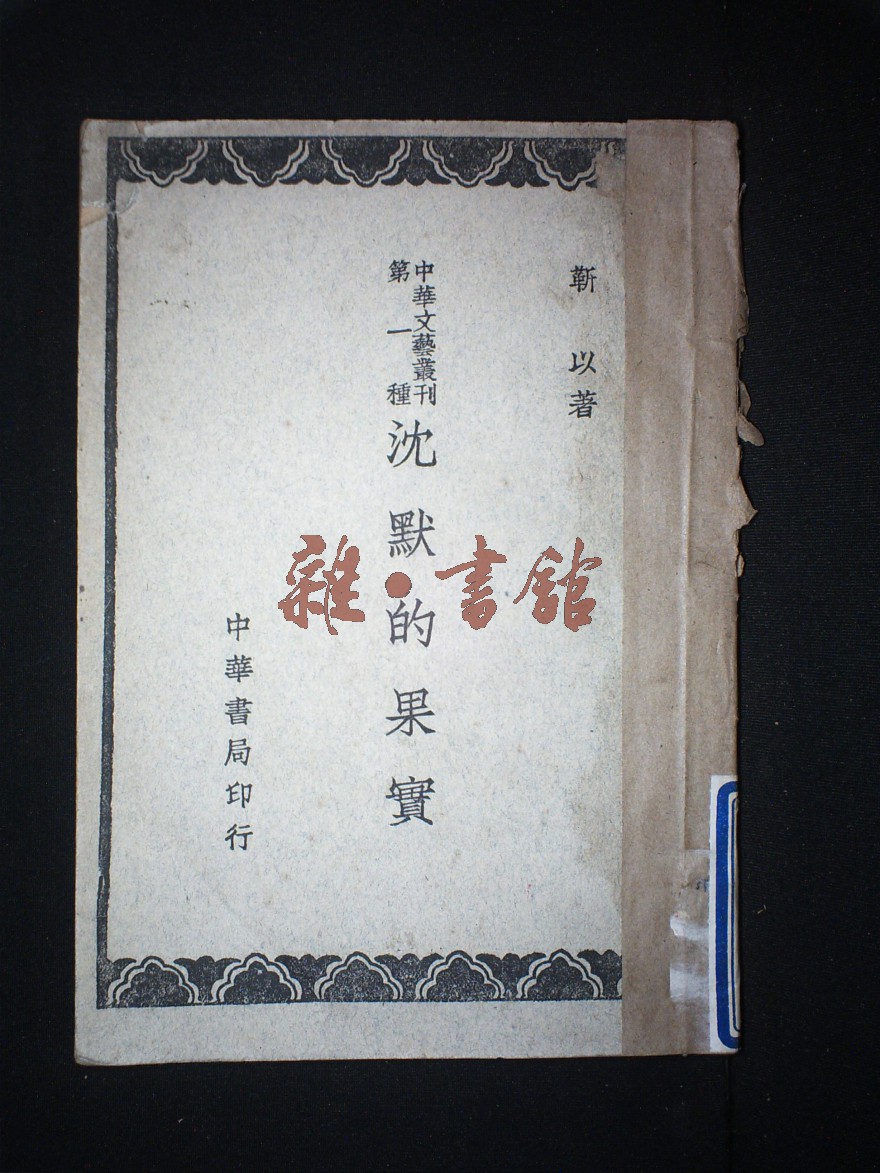 靳以著
中華文藝叢刊
第一種
沈默的果實
中華書局印行
雜·書館